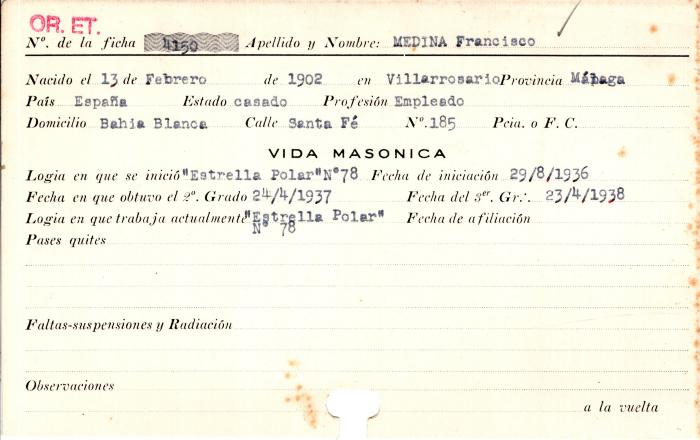 OR. ET.
Nº. de la ficha 4150 Apellido y Nombre: MEDINA Francisco
Nacido el 13 de Febrero de 1902 en Villarrosario Provincia Málaga
País España Estado casado Profesión Empleado
Domicilio Bahia Blanca Calle Santa Fé Nº. 185 Pcia. o F. C.
VIDA MASONICA
Logia en que se inició "Estrella Polar" Nº 78 Fecha de iniciación 29/8/1936
Fecha en que obtuvo el 2º. Grado 24/4/1937 Fecha del 3er. Gr∴ 23/4/1938
Logia en que trabaja actualmente "Estrella Polar" Fecha de afiliación
Nº 78
Pases quites
Faltas-suspensiones y Radiación
Observaciones
a la vuelta